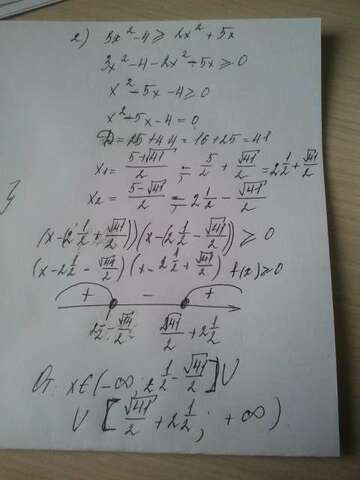 2) 3x² - 4 ≥ 2x² + 5x
3x² - 4 - 2x² - 5x ≥ 0
x² - 5x - 4 ≥ 0
x² - 5x - 4 = 0
D = 25 + 4·4 = 16 + 25 = 41
x₁ = (5+√41)/2 = 5/2 + √41/2 = 2 1/2 + √41/2
x₂ = (5-√41)/2 = 2 1/2 - √41/2
(x-(2 1/2 + √41/2))(x-(2 1/2 - √41/2)) ≥ 0
(x - 2 1/2 - √41/2)(x - 2 1/2 + √41/2) f(x) ≥ 0
+ - +
2 1/2 - √41/2 √41/2 + 2 1/2
От: x∈(-∞; 2 1/2 - √41/2] U
U [√41/2 + 2 1/2; +∞)